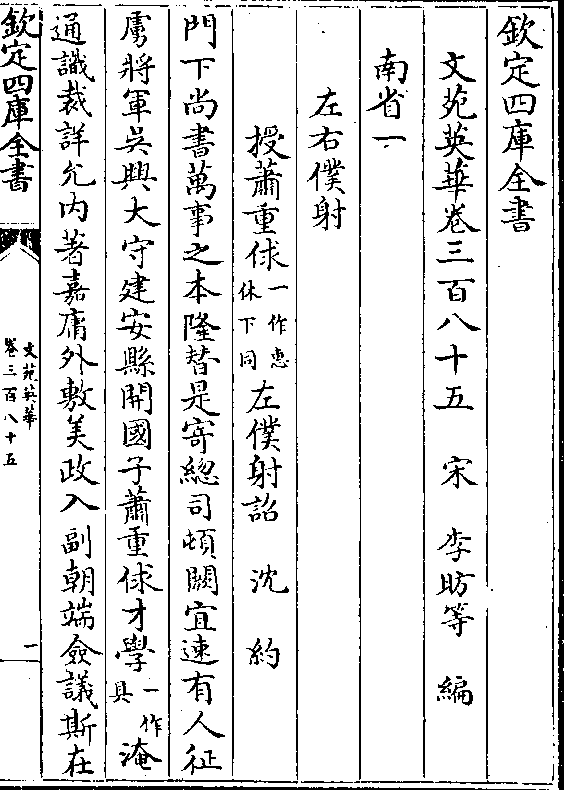 欽定四庫全書
文苑英華卷三百八十五　宋　李昉等　編
南省一
左右僕射
授蕭重俅一作惠休下同左僕射詔　沈　約
門下尚書萬事之本隆替是寄總司頓闕宜速有人征
虜將軍吳興大守建安縣開國子蕭重俅才學一作具淹
通識裁詳允内著嘉庸外敷美政入副朝端僉議斯在
欽定四庫全書
文苑英華
卷三百八十五
一